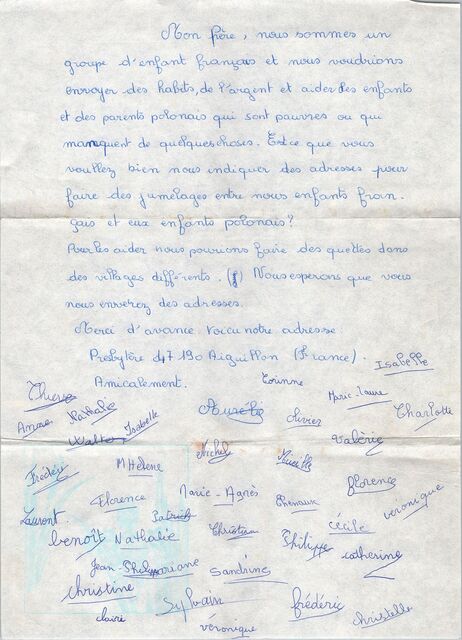 Mon père, nous sommes un
groupe d'enfant français et nous voudrions
envoyer des habits, de l'argent et aider les enfants
et des parents polonais qui sont pauvres ou qui
manquent de quelqueschoses. Estce que vous
voullez bien nous indiquer des adresses pour
faire des jumelages entre nous enfants fran-
çais et eux enfants polonais?
Pour les aider nous pourions faire des quettes dans
des villages différents. Nous esperons que vous
nous enverez des adresses.
Merci d'avance voici notre adresse:
Presbytère 47190 Aiguillon (France).
Amicalement.
Corinne
Isabelle
Thierry
Nathalie
Aurélie
Marie-Laure
Olivier
Charlotte
Isabelle
Walter
Valérie
Michel
Mireille
Frédéric
M Hélène
Florence
Florence
Marie-Agnès
véronique
Laurent
Patrick
Cécile
benoît
Nathalie
Christian
Philippe
catherine
Jean Philippe
Mariane
Sandrine
christine
Sylvain
frédéric
christelle
claire
veronique